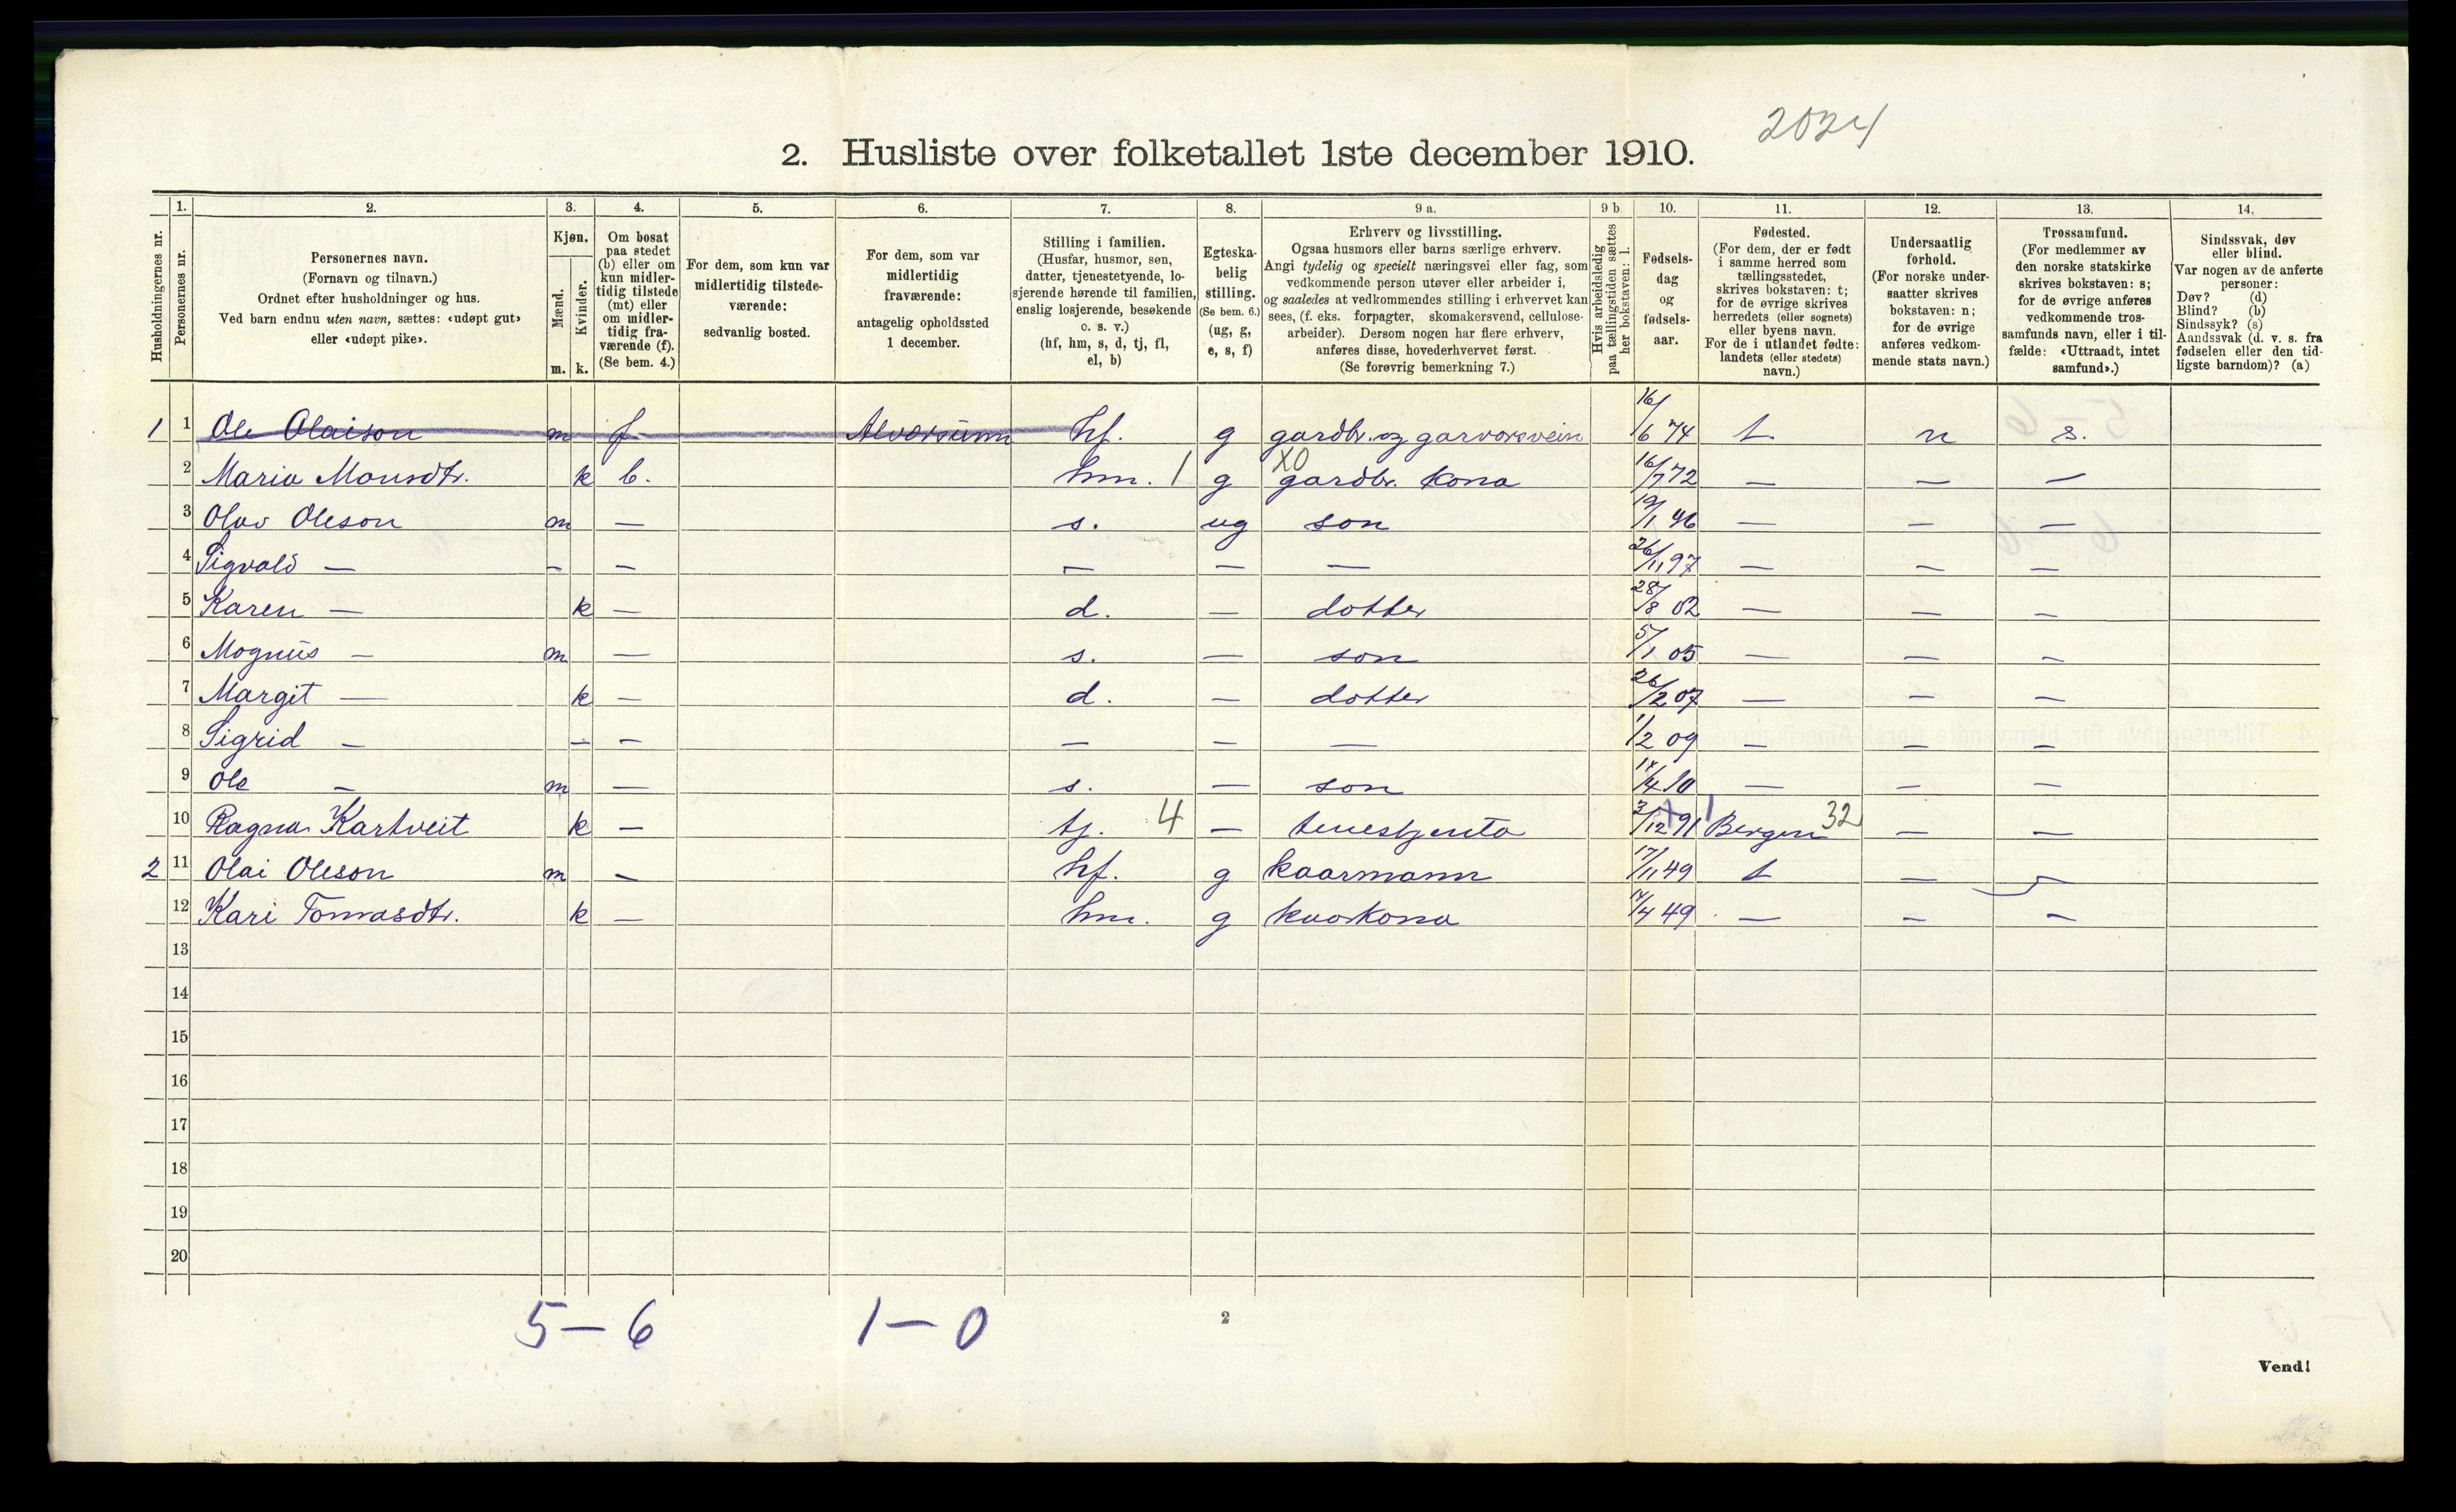 2024
2. Husliste over folketallet 1ste december 1910.
Husholdningernes nr.
1. Personernes nr.
2. Personernes navn.
(Fornavn og tilnavn.)
Ordnet efter husholdninger og hus.
Ved barn endnu uten navn, sættes: «udøpt gut»
eller «udøpt pike».
3. Kjøn.
Mænd. Kvinder.
m. k.
4. Om bosat
paa stedet
(b) eller om
kun midler-
tidig tilstede
(mt) eller
om midler-
tidig fra-
værende (f).
(Se bem. 4.)
5. For dem, som kun var
midlertidig tilstede-
værende:
sedvanlig bosted.
6. For dem, som var
midlertidig
fraværende:
antagelig opholdssted
1 december.
7. Stilling i familien.
(Husfar, husmor, søn,
datter, tjenestetyende, lo-
sjerende hørende til familien,
enslig losjerende, besøkende
o. s. v.)
(hf, hm, s, d, tj, fl,
el, b)
8. Egteska-
belig
stilling.
(Se bem. 6.)
(ug, g,
e, s, f)
9 a. Erhverv og livsstilling.
Ogsaa husmors eller barns særlige erhverv.
Angi tydelig og specielt næringsvei eller fag, som
vedkommende person utøver eller arbeider i,
og saaledes at vedkommendes stilling i erhvervet kan
sees, (f. eks. forpagter, skomakersvend, cellulose-
arbeider). Dersom nogen har flere erhverv,
anføres disse, hovederhvervet først.
(Se forøvrig bemerkning 7.)
9 b. Hvis arbeidsledig
paa tællingstiden sættes
her bokstaven: l.
10. Fødsels-
dag
og
fødsels-
aar.
11. Fødested.
(For dem, der er født
i samme herred som
tællingsstedet,
skrives bokstaven: t;
for de øvrige skrives
herredets (eller sognets)
eller byens navn.
For de i utlandet fødte:
landets (eller stedets)
navn.)
12. Undersaatlig
forhold.
(For norske under-
saatter skrives
bokstaven: n;
for de øvrige
anføres vedkom-
mende stats navn.)
13. Trossamfund.
(For medlemmer av
den norske statskirke
skrives bokstaven: s;
for de øvrige anføres
vedkommende tros-
samfunds navn, eller i til-
fælde: «Uttraadt, intet
samfund».)
14. Sindssvak, døv
eller blind.
Var nogen av de anførte
personer:
Døv? (d)
Blind? (b)
Sindssyk? (s)
Aandssvak (d. v. s. fra
fødselen eller den tid-
ligste barndom)? (a)
1 1 Ole Olaison m f Alversumn hf. g gardbr. og garvarsvein 16/6 74 t. n s.
2 Maria Monsdtr. k b. hm. 1 g XO gardbr. kona 16/7 72 — — —
3 Olav Oleson m — s. ug son 19/1 96 — — —
4 Sigvald — - — — — — 26/11 97 — — —
5 Karen — k — d. — dotter 28/8 02 — — —
6 Magnus — m — s. — son 5/1 05 — — —
7 Margit — k — d. — dotter 26/2 07 — — —
8 Sigrid — - — — — — 1/2 09 — — —
9 Ole — m — s. — son 14/4 10 — — —
10 Ragna Kartveit k — tj. 4 — tenestjenta 3/12 91 Bergen 32 — —
2 11 Olai Oleson m — hf. g kaarmann 17/11 49 t — —
12 Kari Tomasdtr. k — hm. g kaarkona 14/4 49 — — —
13
14
15
16
17
18
19
20
5 — 6 1 — 0
2
Vend!